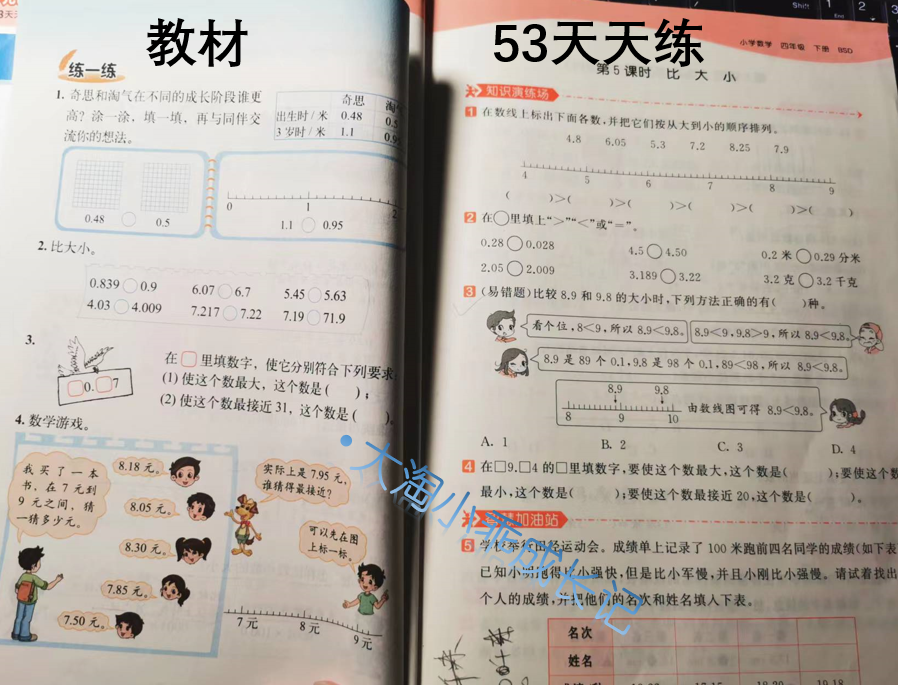 教材
练一练
1. 奇思和淘气在不同的成长阶段谁更
高？涂一涂，填一填，再与同伴交
流你的想法。
奇思 淘
出生时/米 0.48 0.5
3岁时/米 1.1 0.9
0.48 ○ 0.5
0 1 2
1.1 ○ 0.95
2. 比大小。
0.839 ○ 0.9 6.07 ○ 6.7 5.45 ○ 5.63
4.03 ○ 4.009 7.217 ○ 7.22 7.19 ○ 71.9
3.
□0.□7
在□里填数字，使它分别符合下列要求
(1) 使这个数最大，这个数是( )；
(2) 使这个数最接近31，这个数是( )。
4. 数学游戏。
我买了一本
书，在7元到
9元之间，猜
一猜多少元。
8.18元。
8.05元。
8.30元。
7.85元。
7.50元。
实际上是7.95元，
谁猜得最接近？
可以先在图
上标一标。
7元 8元 9元
53天天练
小学数学 四年级 下册 BSD
第5课时 比大小
知识演练场
1 在数线上标出下面各数，并把它们按从大到小的顺序排列。
4.8 6.05 5.3 7.2 8.25 7.9
4 5 6 7 8 9
( )>( )>( )>( )>( )>( )
2 在○里填上“>”“<”或“=”。
0.28○0.028 4.5○4.50 0.2米○0.29分米
2.05○2.009 3.189○3.22 3.2克○3.2千克
3 (易错题)比较8.9和9.8的大小时，下列方法正确的有( )种。
看个位，8<9，所以8.9<9.8。
8.9<9，9.8>9，所以8.9<9.8。
8.9是89个0.1，9.8是98个0.1，89<98，所以8.9<9.8。
8.9 9.8
8 9 10
由数线图可得8.9<9.8。
A. 1 B. 2 C. 3 D. 4
4 在□9.□4的□里填数字，要使这个数最大，这个数是( )；要使这个数
最小，这个数是( )；要使这个数最接近20，这个数是( )。
加油站
5 学校举行田径运动会。成绩单上记录了100米跑前四名同学的成绩(如下表
已知小明跑得比小强快，但是比小军慢，并且小刚比小强慢。请试着找出
个人的成绩，并把他们的名次和姓名填入下表。
名次
姓名
大淘小乖成长记